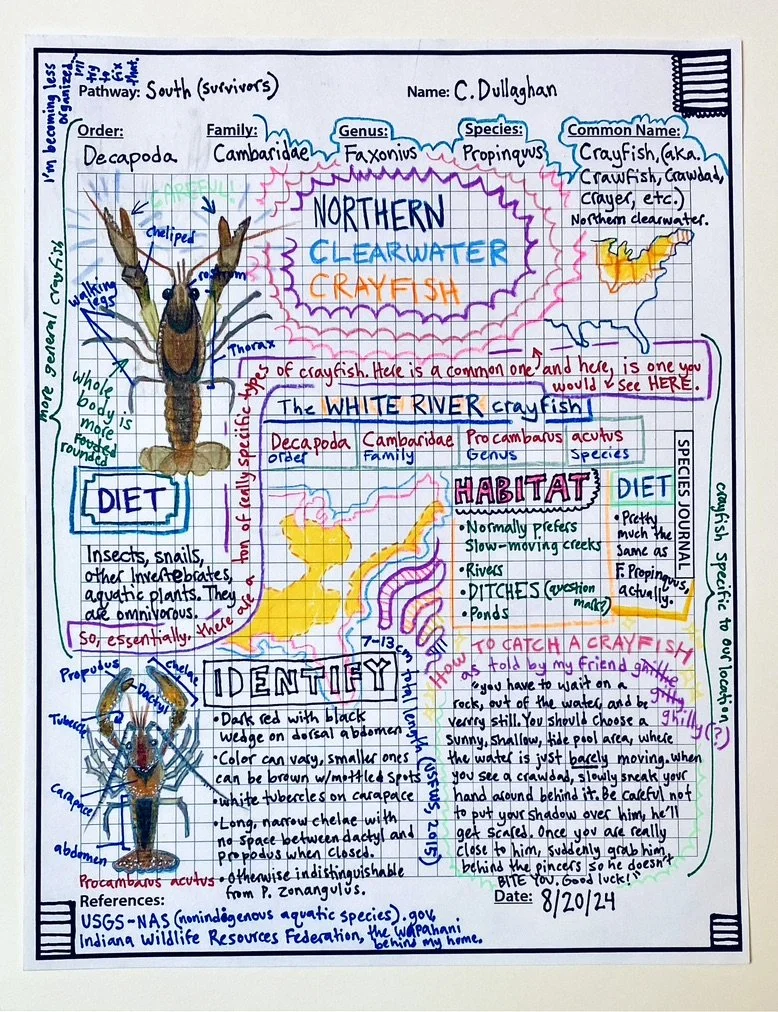 I'm becoming less
organized.
I'll
try
to
fix
that.
Pathway: South (survivors)
Name: C. Dullaghan
Order:
Decapoda
Family:
Cambaridae
Genus:
Faxonius
Species:
Propinquus
Common Name:
Crayfish, (aka.
Crawfish, Crawdad,
Crayer, etc.)
Northern clearwater.
CAREFUL!
cheliped
rostrum
walking
legs
Thorax
whole
body is
more
rounded
more general crayfish
NORTHERN
CLEARWATER
CRAYFISH
So, essentially. there are a ton of really specific types
of crayfish. Here is a common one and here, is one you
would see HERE.
The WHITE RIVER crayfish
Decapoda
order
Cambaridae
Family
Procambarus
Genus
acutus
Species
SPECIES JOURNAL
DIET
Insects, snails,
other Invertebrates,
aquatic plants. They
are omnivorous.
HABITAT
• Normally prefers
slow-moving creeks
• Rivers
• DITCHES (question
mark?)
• Ponds
DIET
• Pretty
much the
same as
F. Propinquus,
actually.
crayfish specific to our location
Propudus
chelae
Dactyl
Tubercle
Carapace
abdomen
Procambarus acutus
IDENTIFY
• Dark red with black
wedge on dorsal abdomen
• Color can vary, smaller ones
can be brown w/mottled spots
• white tubercles on carapace
• Long, narrow chelae with
no space between dactyl and
propodus when closed.
• otherwise indistinguishable
from P. zonangulus.
7-13cm total length (USFWS, 2015)
HOW TO CATCH A CRAYFISH
as told by my friend ghillie
gitty
ghilly(?)
"you have to wait on a
rock, out of the water, and be
verrry still. You should choose a
sunny, shallow, tide pool area, where
the water is just barely moving. when
you see a crawdad, slowly sneak your
hand around behind it. Be careful not
to put your shadow over him, he'll
get scared. Once you are really
close to him, suddenly grab him,
behind the pincers so he doesn't
BITE YOU. Good luck!"
References:
USGS-NAS (nonindigenous aquatic species).gov,
Indiana Wildlife Resources Federation, the wapahani
behind my home.
Date: 8/20/24